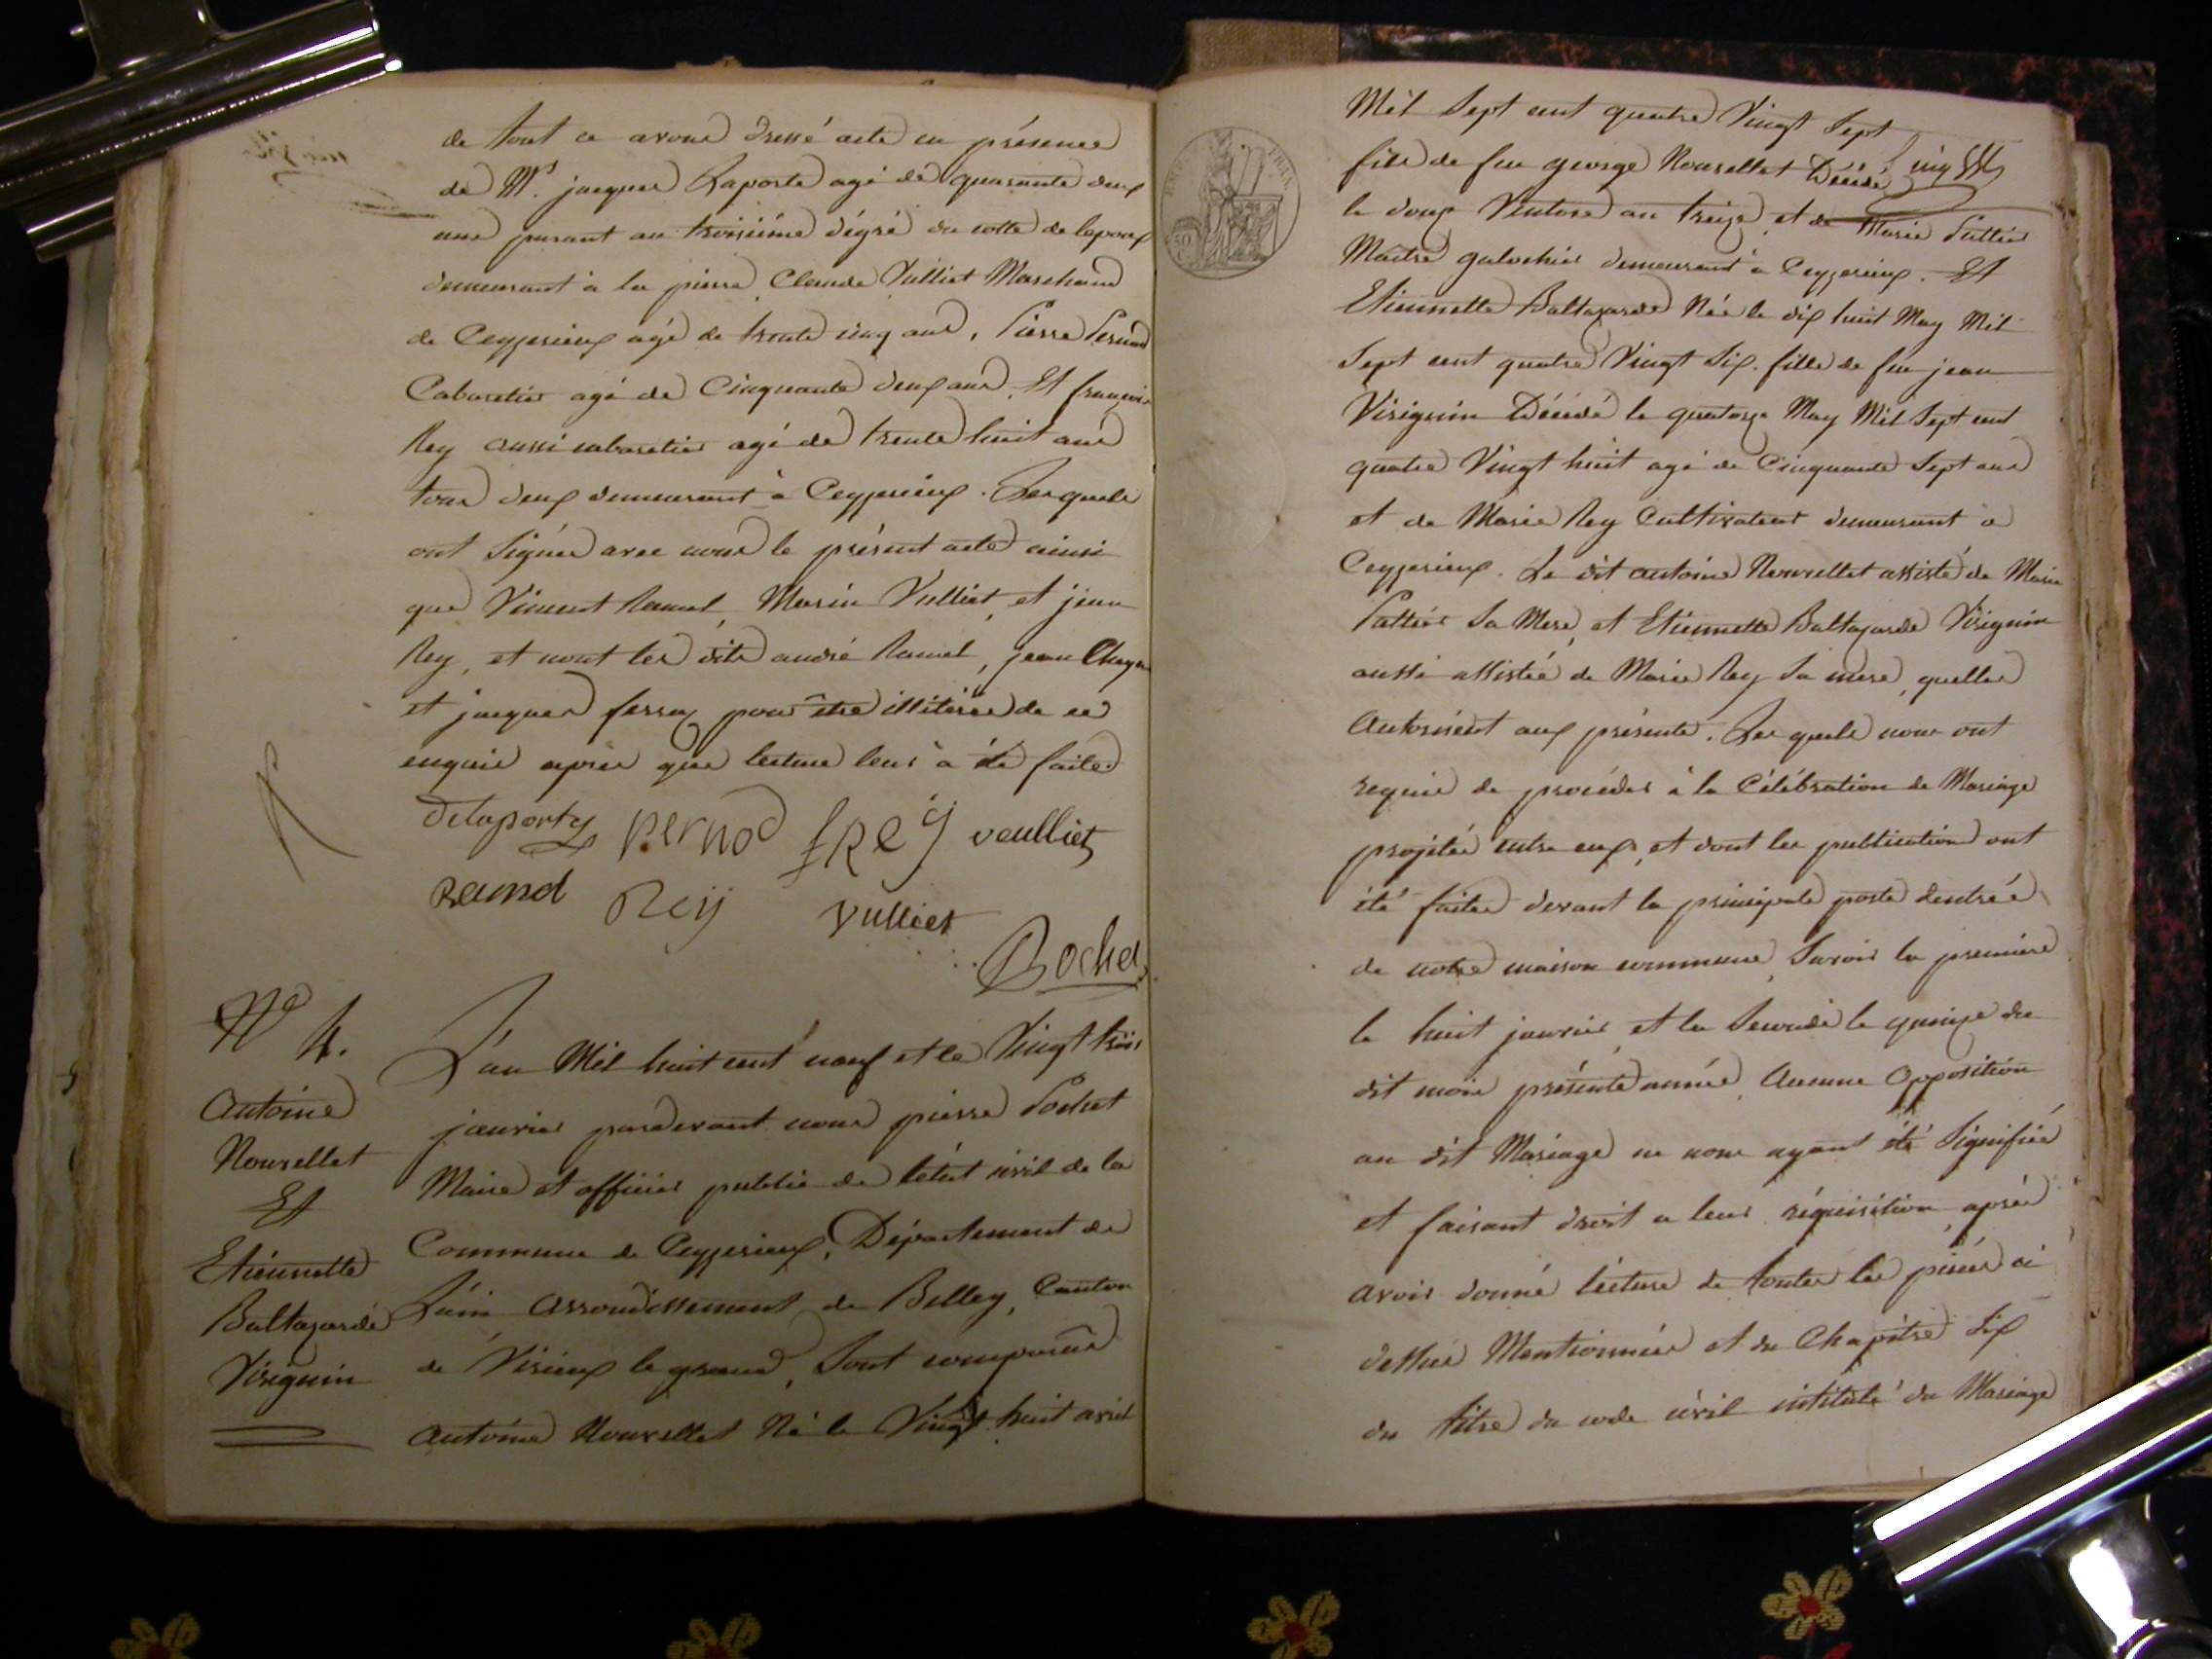 de tout ce avons dressé acte en présence
de Mr. jacques Laporte agé de quarante deux
ans parant au troisiéme dégré du cotté de lepoux
demeurant à la pierre, Claude Vulliet Marchand
de Ceyzerieux agé de trente cinq ans, Pierre Pernod
Cabaretier agé de Cinquante deux ans, Et françois
Rey aussi cabaretier agé de trente huit ans
tous deux demeurant à Ceyzerieux. Lesquels
ont signés avec nous le présent acte ainsi
que Vincent Ramel, Marin Vulliet, et jean
Rey, et nont les dits andré Ramel, jean
et jacques pour être illitérés de ce
enquis après que lecture leur à été faite
Delaporte pernod frey veulliet
Rey vulliet
Nº 4.
Antoine
Nourellet
Et
Etiennette
Baltazarde
Virignin
L'an Mil huit cent neuf et le Vingt trois
janvier pardevant nous pierre
Maire et officier public de létat civil de la
Commune de Ceyzerieux, Département de
Lain Arrondissement de Belley, Canton
de Virieux le grand, Sont comparus
Antoine Nourellet Né le Vingt huit avril
Mil Sept cent quatre Vingt Sept
fils de feu george Nourellet Décédé
le douze Ventose an treize, et de Marie
Maitre galochier demeurant à Ceyzerieux. Et
Etiennette Baltazarde Née le dix huit May Mil
Sept cent quatre Vingt Six. fille de feu jean
Virignin Décédé le quatorze May Mil Sept cent
quatre Vingt huit agé de Cinquante Sept ans
et de Marie Rey Cultivateur demeurant à
Ceyzerieux. Le dit antoine Nourellet assisté de Marie
Sa Mere, et Etiennette Baltazarde Virignin
aussi assistée de Marie Rey Sa mere, quelles
Autorisent aux présente. Lesquels nous ont
requis de procéder à la Célébration de Mariage
projetée entre eux, et dont les publication ont
été faites devant la principale porte dentrée
de notre maison commune, Savoir la premiére
le huit janvier et la Seconde le quinze du
dit mois présente année, Aucune Opposition
au dit Mariage ne nous ayant été Signifiée
et faisant droit a leur réquisition, après
avoir donné lécture de toutes les piéces ci
dessus Mentionnées et du Chapitre Six
du titre du code civil intitulé du Mariage